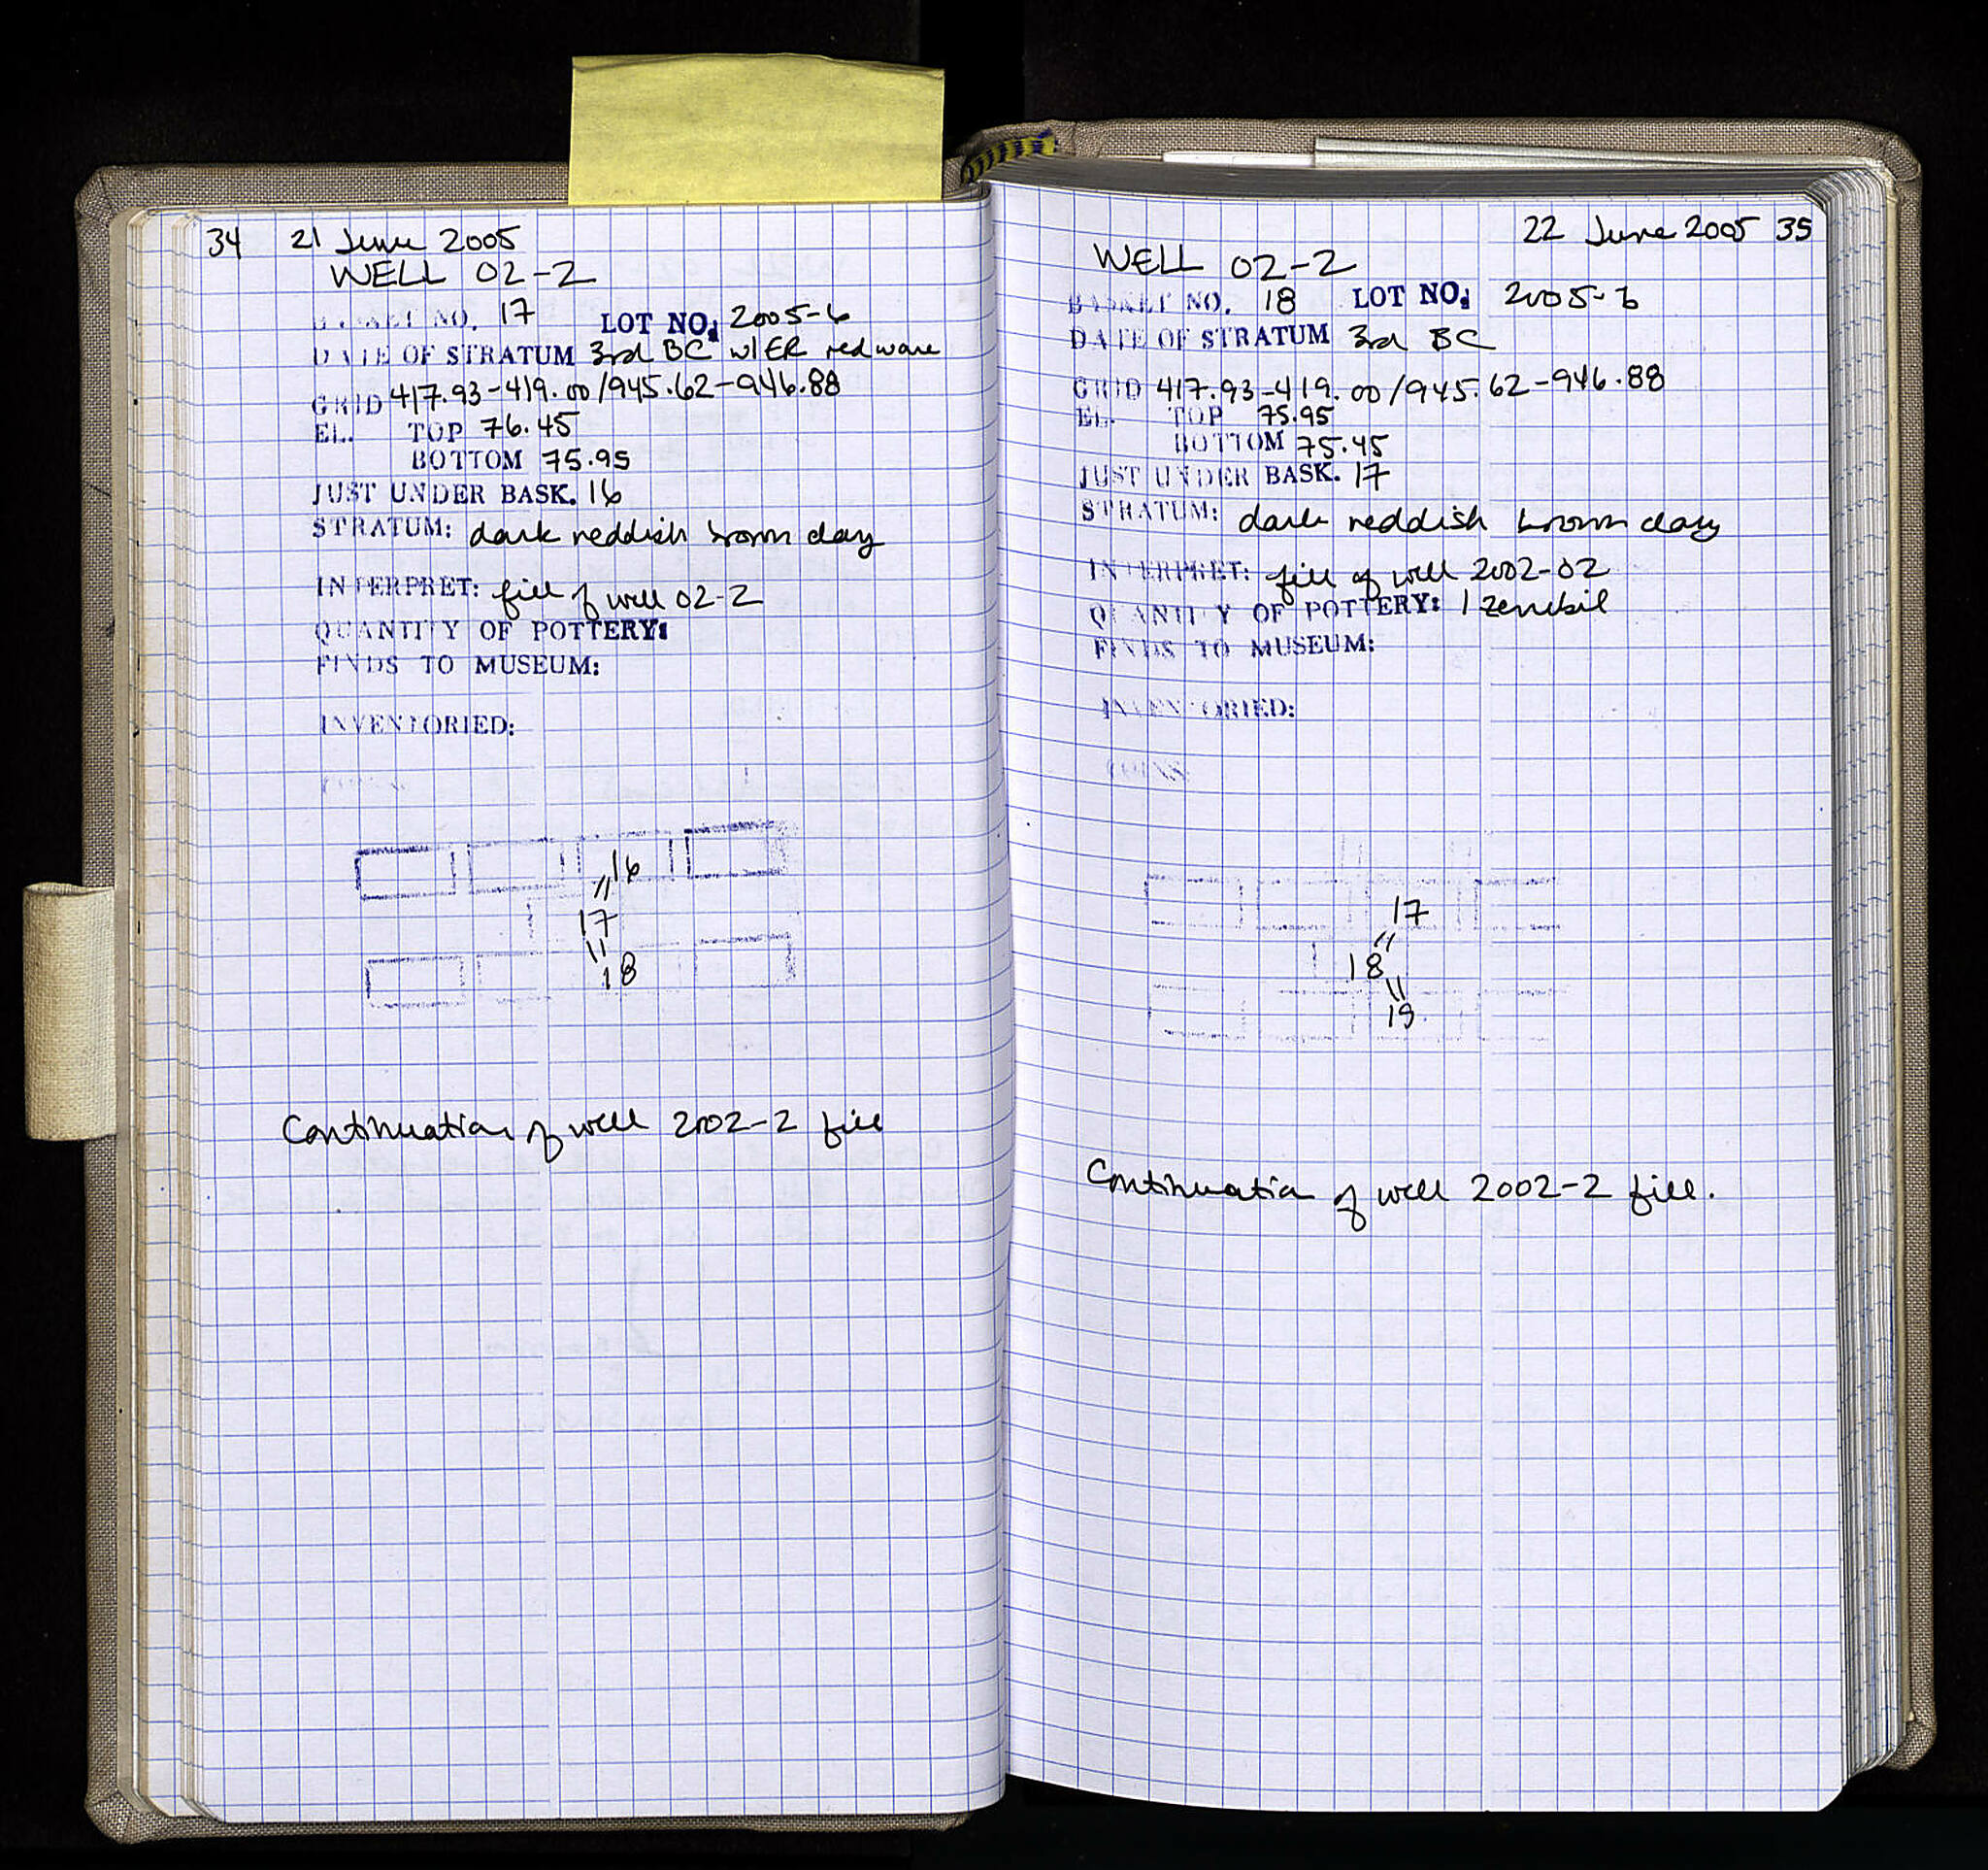 34 21 June 2005
WELL 02-2
BASKET NO. 17 LOT NO. 2005-6
DATE OF STRATUM 3rd BC w/ER redware
GRID 417.93-419.00/945.62-946.88
EL. TOP 76.45
BOTTOM 75.95
JUST UNDER BASK. 16
STRATUM: dark reddish brown clay
INTERPRET: fill of well 02-2
QUANTITY OF POTTERY:
FINDS TO MUSEUM:
INVENTORIED:
COINS
16
//
17
\\
18
Continuation of well 2002-2 fill
22 June 2005 35
WELL 02-2
BASKET NO. 18 LOT NO. 2005-6
DATE OF STRATUM 3rd BC
GRID 417.93-419.00/945.62-946.88
EL. TOP 75.95
BOTTOM 75.45
JUST UNDER BASK. 17
STRATUM: dark reddish brown clay
INTERPRET: fill of well 2002-02
QUANTITY OF POTTERY: 1 zembil
FINDS TO MUSEUM:
INVENTORIED:
COINS
17
//
18
\\
19
Continuation of well 2002-2 fill.